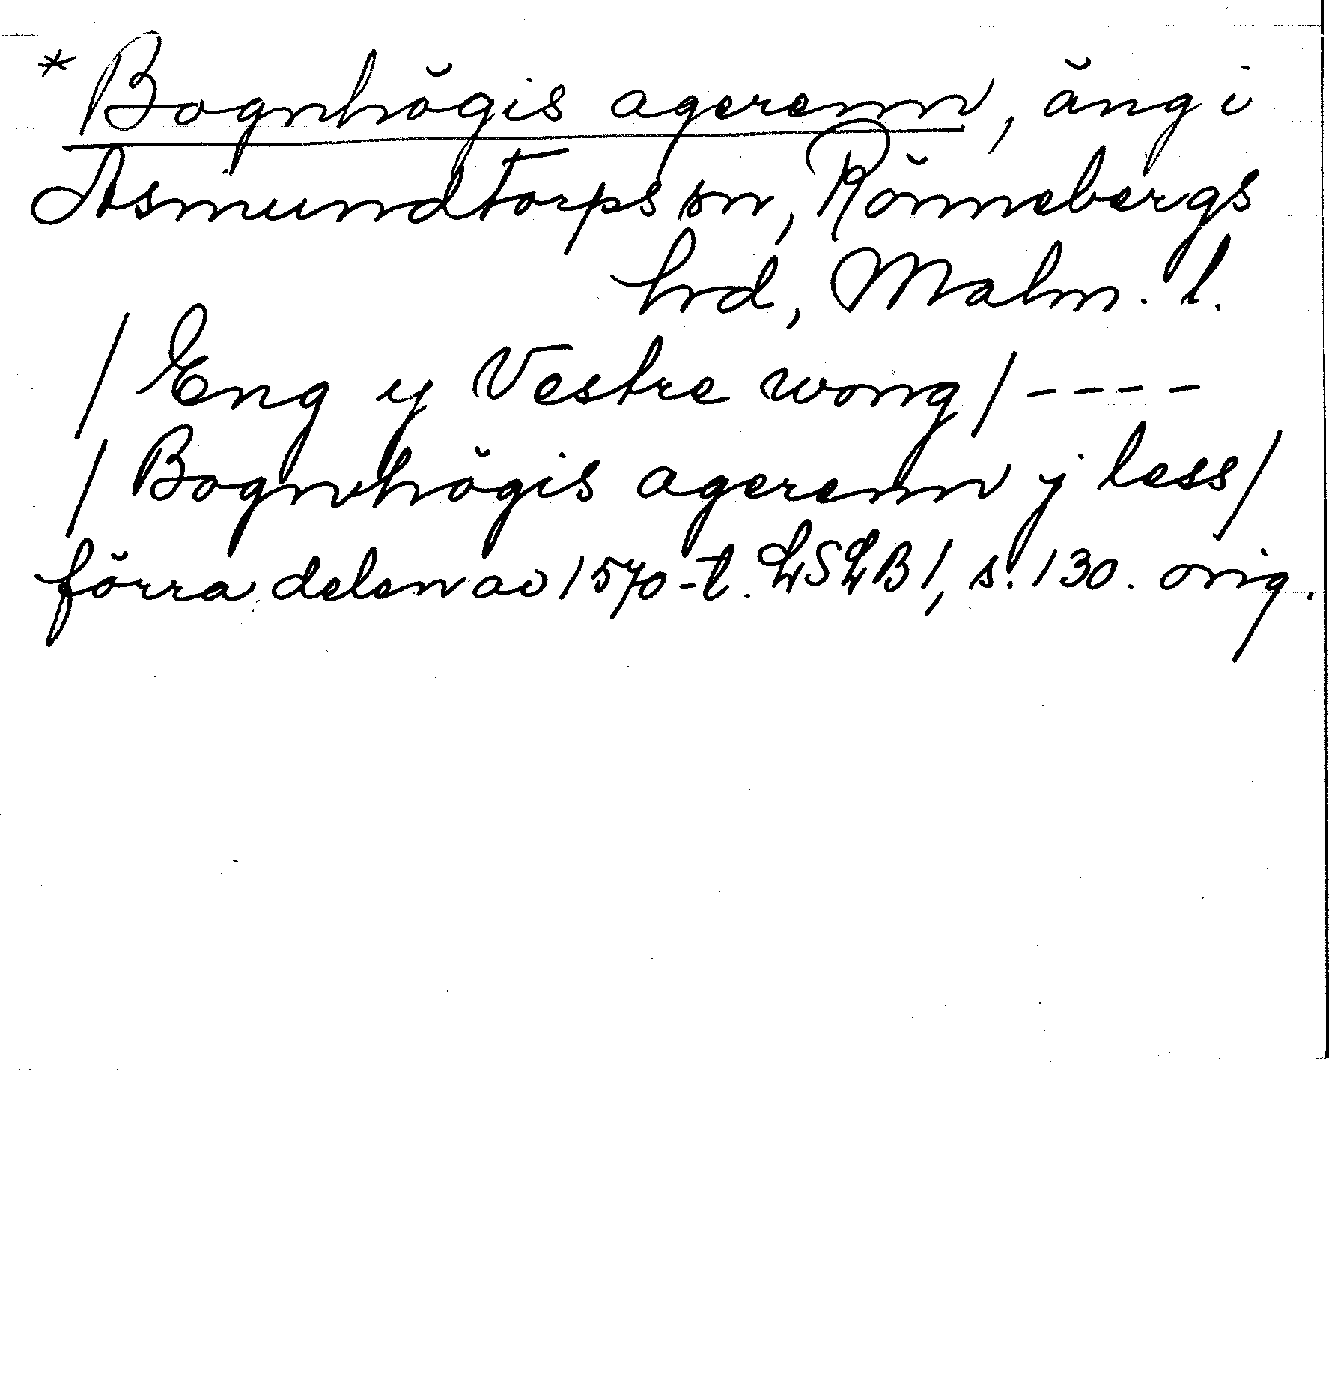 * Bognhögis agerenn, äng i
Asmundtorps sn, Rönnebergs
hrd, Malm. l.
/ Eng y Vestre wong / - - - -
/ Bognhögis agerenn j less /
förra delen av 1570-t. LSLB 1, s. 130. orig.